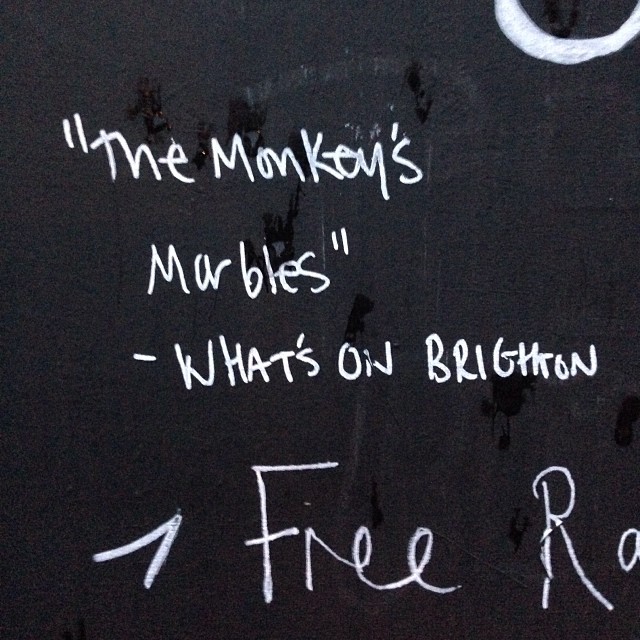 "The Monkey's
Marbles"
- WHAT'S ON BRIGHTON
Free Ra